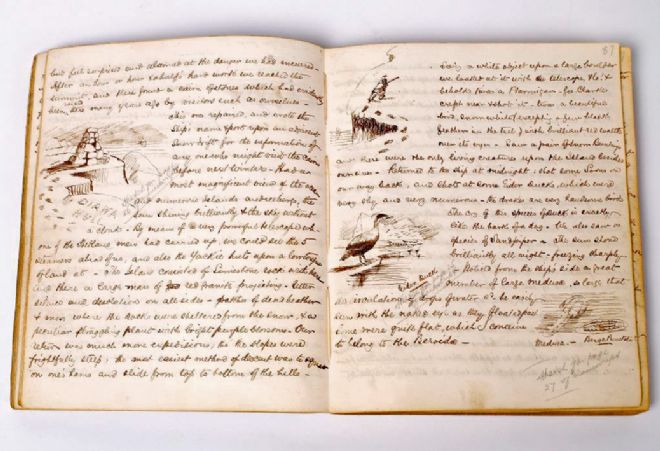 but felt surprised and alarmed at the danger we had incurred -
After an hour or hour & a half's hard work we reached the
summit, and there found a cairn which had evidently
been many years ago by visitors such as ourselves -
this we repaired, and wrote the
Ship's name upon an adjacent
Snow drift for the information of
any one who might visit the cairn
before next winter - Had a
most magnificent view of the sea
and numerous Islands and icebergs, the
sun shining brilliantly & the sky without
a cloud - By means of a very powerful telescope which
one of the Shetland men had carried up, we could see the 5
steamers ahead of us, and also the Yackie huts upon a low tongue
of land at - The place consisted of Limestone rock with
and there in large mass of red granite projecting - utter
silence and desolation on all sides - patches of dead heather
& moss where the rocks were sheltered from the snow, & a
peculiar straggling plant with bright purple blossoms. Our
return was much more expeditious, tho' the slopes were
frightfully steep; the most easiest method of descent was to
on one's hams and slide from top to bottom of the hills -
87
Seeing a white object upon a large boulder
we looked at it with the telescope, &
behold twas a Ptarmigan - so Charlie
crept near & shot it - twas a beautiful
bird, snow white excepting a few black
feathers in the tail, & with brilliant red wattle
over its eyes - Saw a pair of Snow Bunting
and these were the only living creatures upon the Island besides
ourselves - Returned to the ship at midnight; shot some on
our way back, and shots at some Eider Ducks, which were
very shy, and very numerous - the drakes are very handsome birds
the cry of this species of duck is exactly
like the bark of a dog - We also saw a
species of Sandpiper - The sun shone
brilliantly all night - freezing sharply -
Noticed from the ship's side a great
number of large medusae, so large that
the circulation of can be easily
seen with the naked eye as they float past
some were quite flat, which I conceive
to belong to the Beroidae -
Eider Duck
Medusa -
57